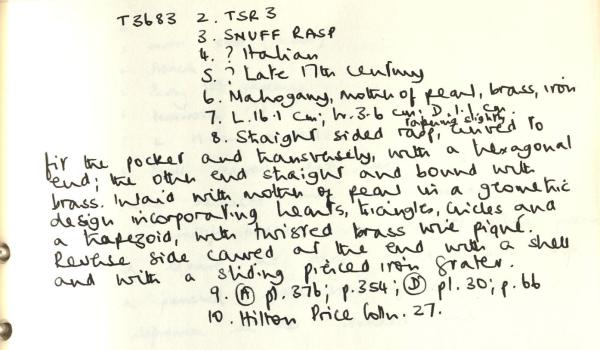 T3683 2. TSR3
3. SNUFF RASP
4. ? Italian
5. ? Late 17th century
6. Mahogany, mother of pearl, brass, iron
7. L. 16.1 cm; W. 3.6 cm; D. 1.1 cm
8. Straight sided tapering slightly rasp, curved to
fit the pocket and transversely, with a hexagonal
end; the other end straight and bound with
brass. Inlaid with mother of pearl in a geometric
design incorporating hearts, triangles, circles and
a trapezoid, with twisted brass wire piqué.
Reverse side carved at the end with a shell
and with a sliding pierced iron grater.
9. (A) pl. 376; p. 354; (D) pl. 30; p. 66
10. Hilton Price Colln. 27.